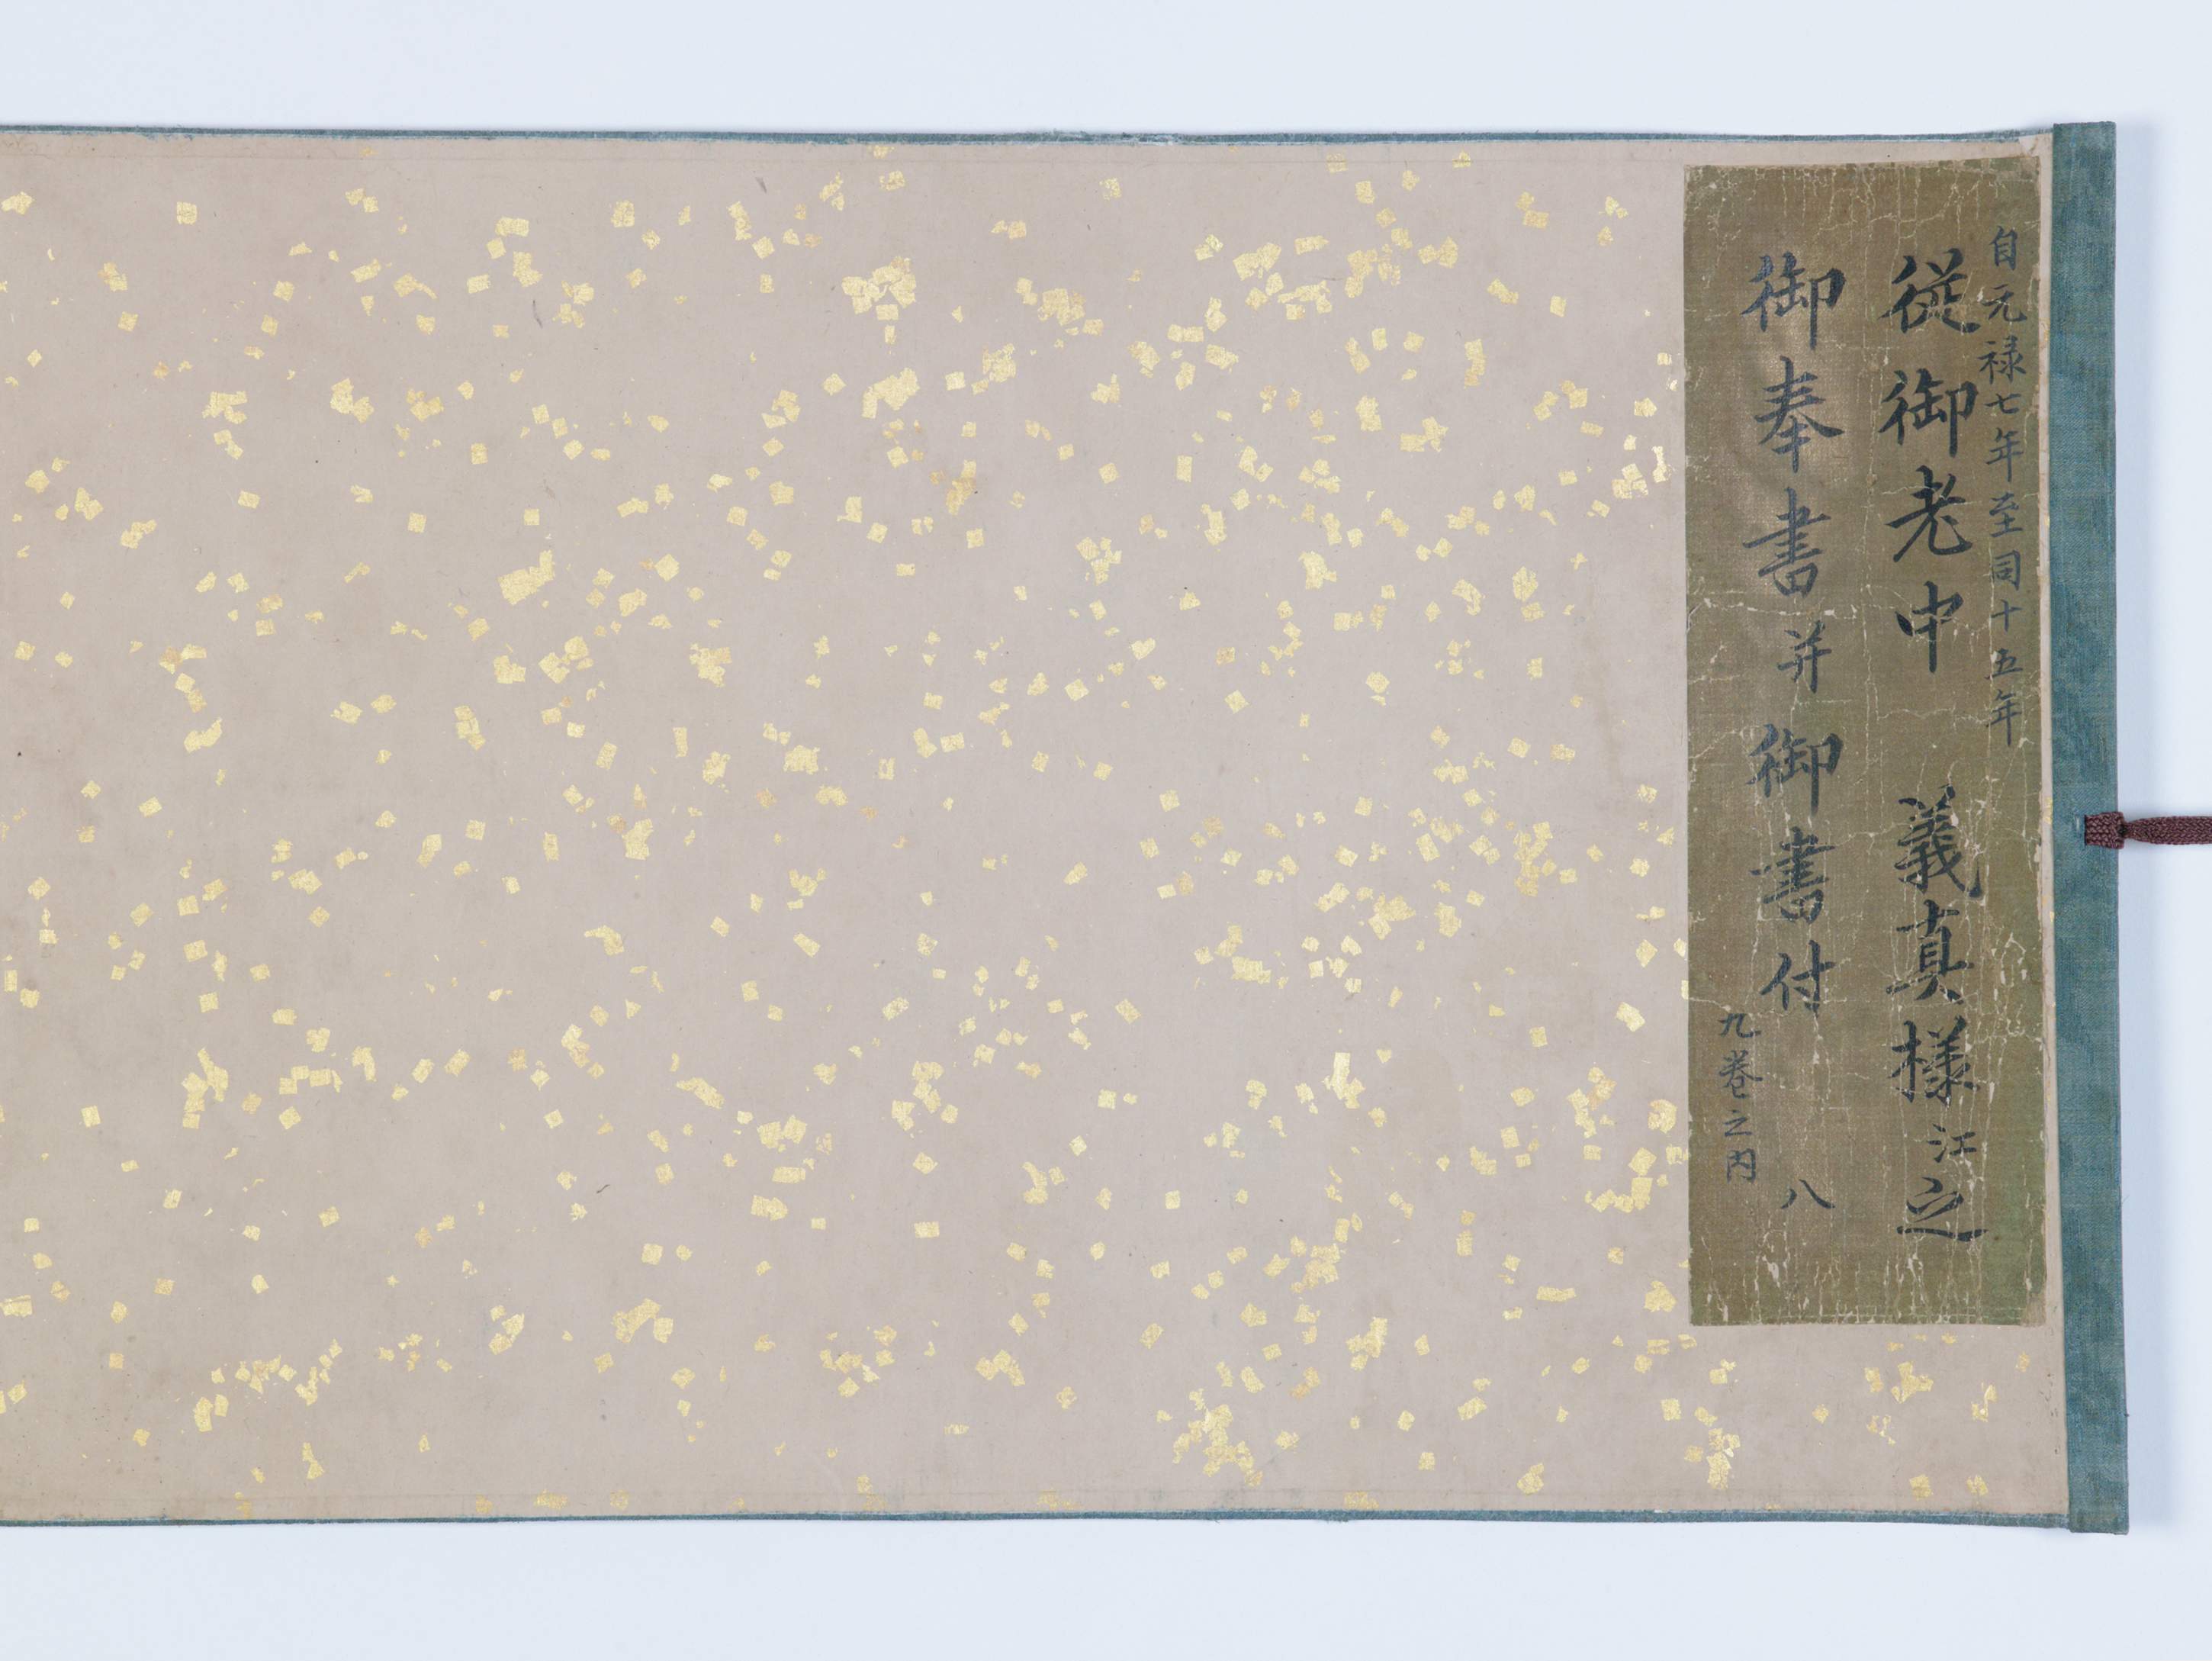 自元禄七年至同十五年
従御老中 義真様江之
御奉書并御書付 八
九巻之内